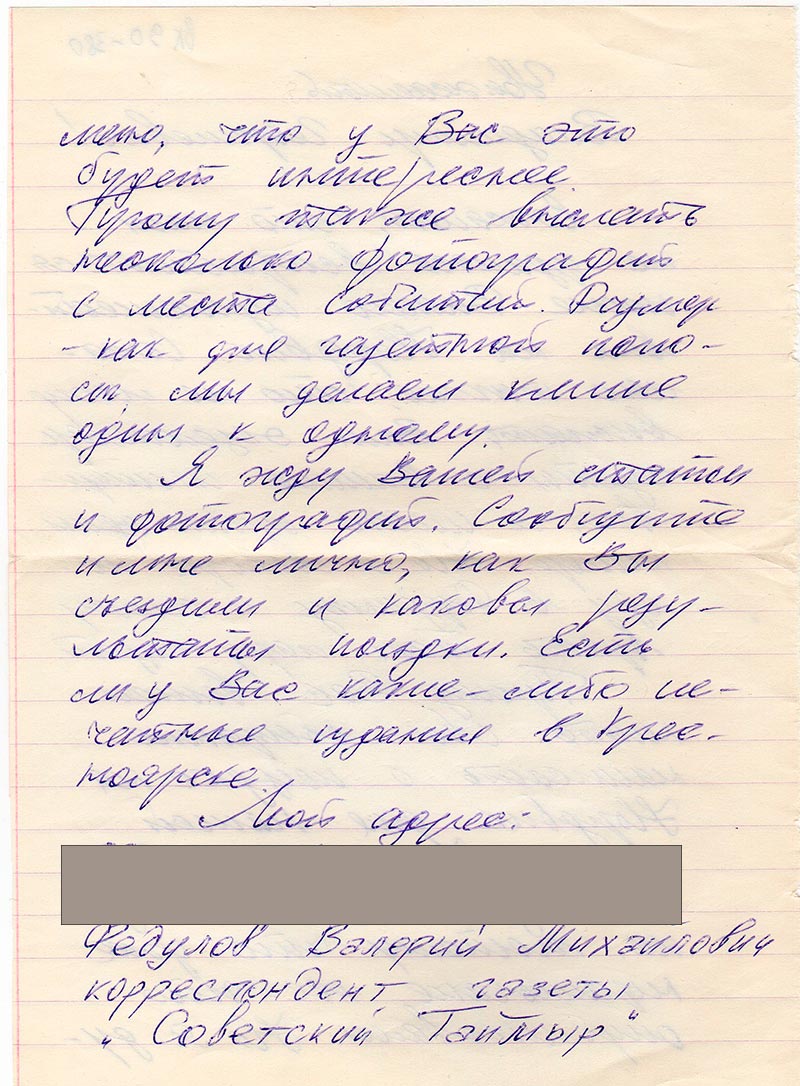 мено, что у Вас это
будет интереснее.
Прошу также выслать
несколько фотографий
с места событий. Размер
- как для газетной поло-
сы, мы делаем клише
один к одному.
Я жду Вашей статьи
и фотографий. Сообщите
и мне лично, как Вы
съездили и каковы резу-
льтаты поездки. Есть
ли у Вас какие-либо пе-
чатные издания в Крас-
ноярске.
Мой адрес:
Федулов Валерий Михаилович
корреспондент газеты
„Советский Таймыр"